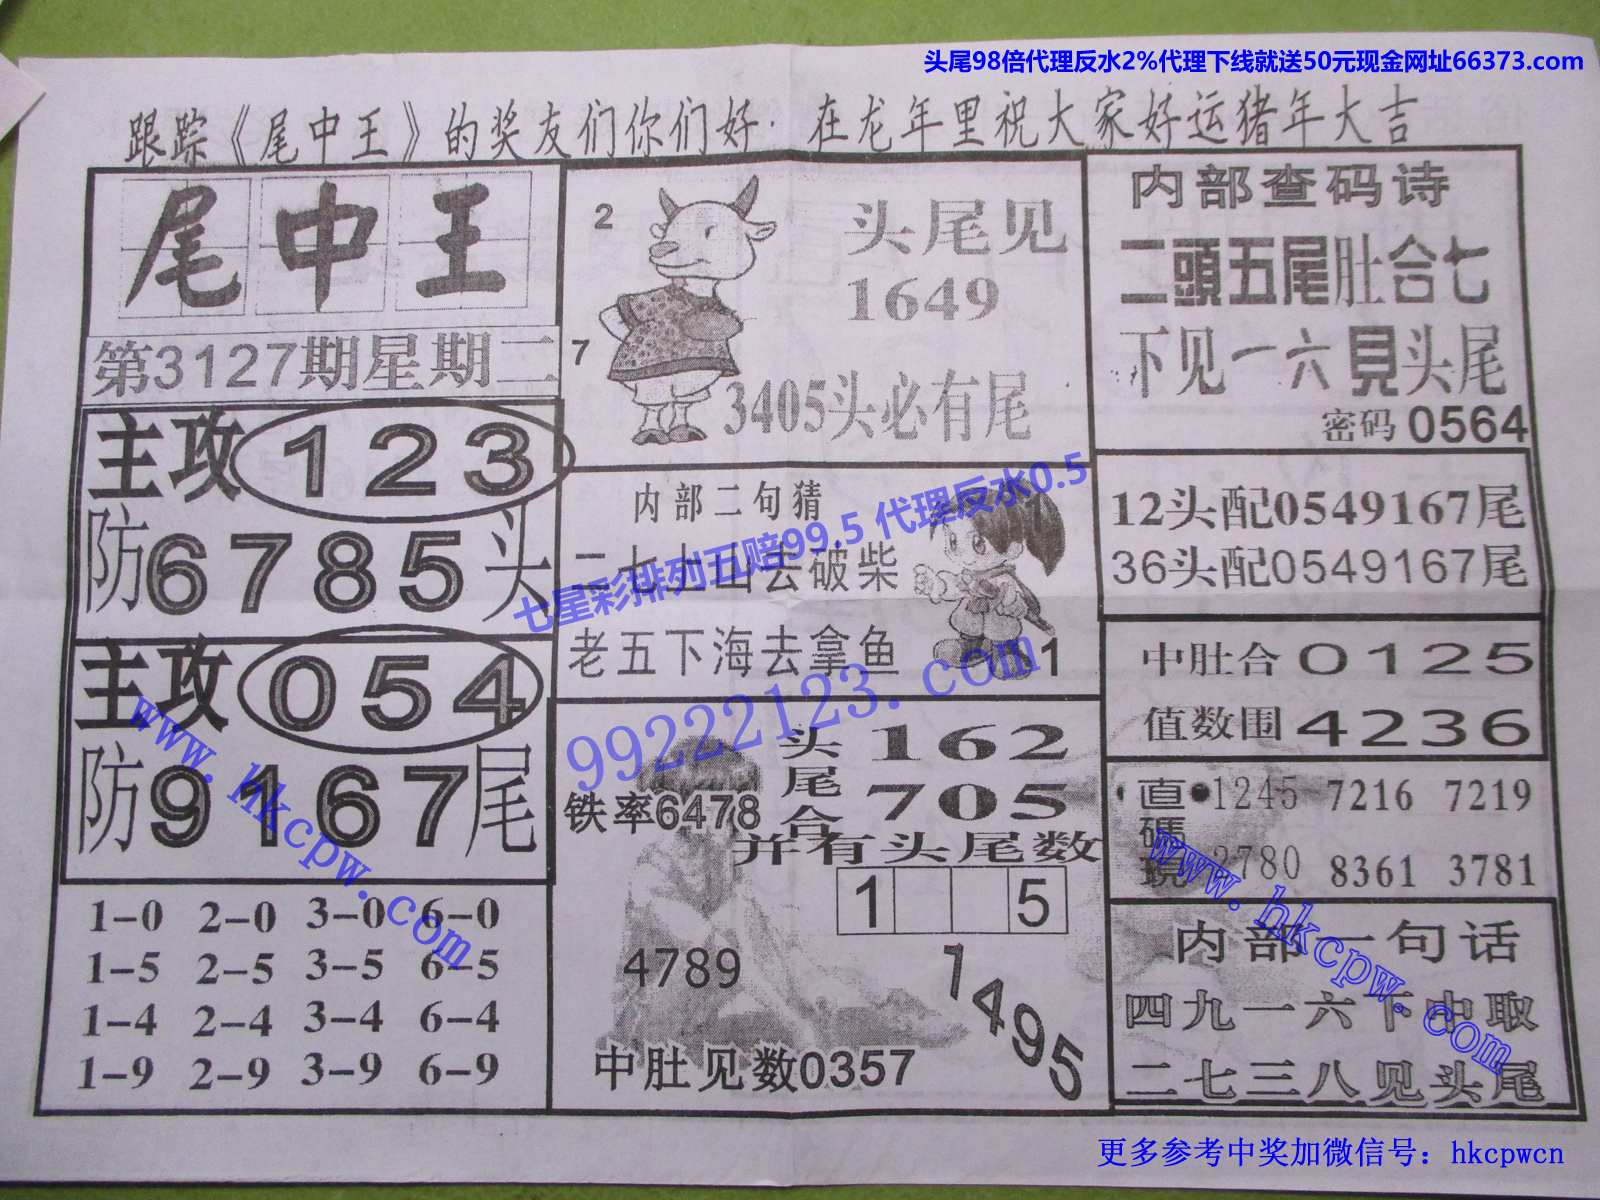 头尾98倍代理反水2%代理下线就送50元现金网址66373.com
跟踪《尾中王》的奖友们你们好·在龙年里祝大家好运猪年大吉
尾中王
第3127期星期二
主攻 123
防6785头
主攻 054
防9167尾
1-0 2-0 3-0 6-0
1-5 2-5 3-5 6-5
1-4 2-4 3-4 6-4
1-9 2-9 3-9 6-9
2
7
头尾见
1649
3405头必有尾
内部二句猜
二七上山去破柴
老五下海去拿鱼
1
七星彩排列五赔99.5 代理反水0.5
99222123.com
头尾合
162
705
铁率6478
并有头尾数
1 5
4789
1495
中肚见数0357
内部查码诗
二頭五尾肚合七
下见一六見头尾
密码 0564
12头配0549167尾
36头配0549167尾
中肚合 0125
值数围 4236
直碼現
1245 7216 7219
2780 8361 3781
内部一句话
四九一六下中取
二七三八见头尾
www.hkcpw.com
www.hkcpw.com
更多参考中奖加微信号：hkcpwcn